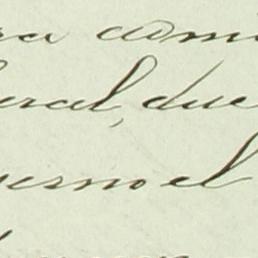 ra admi
eral, due
verno el